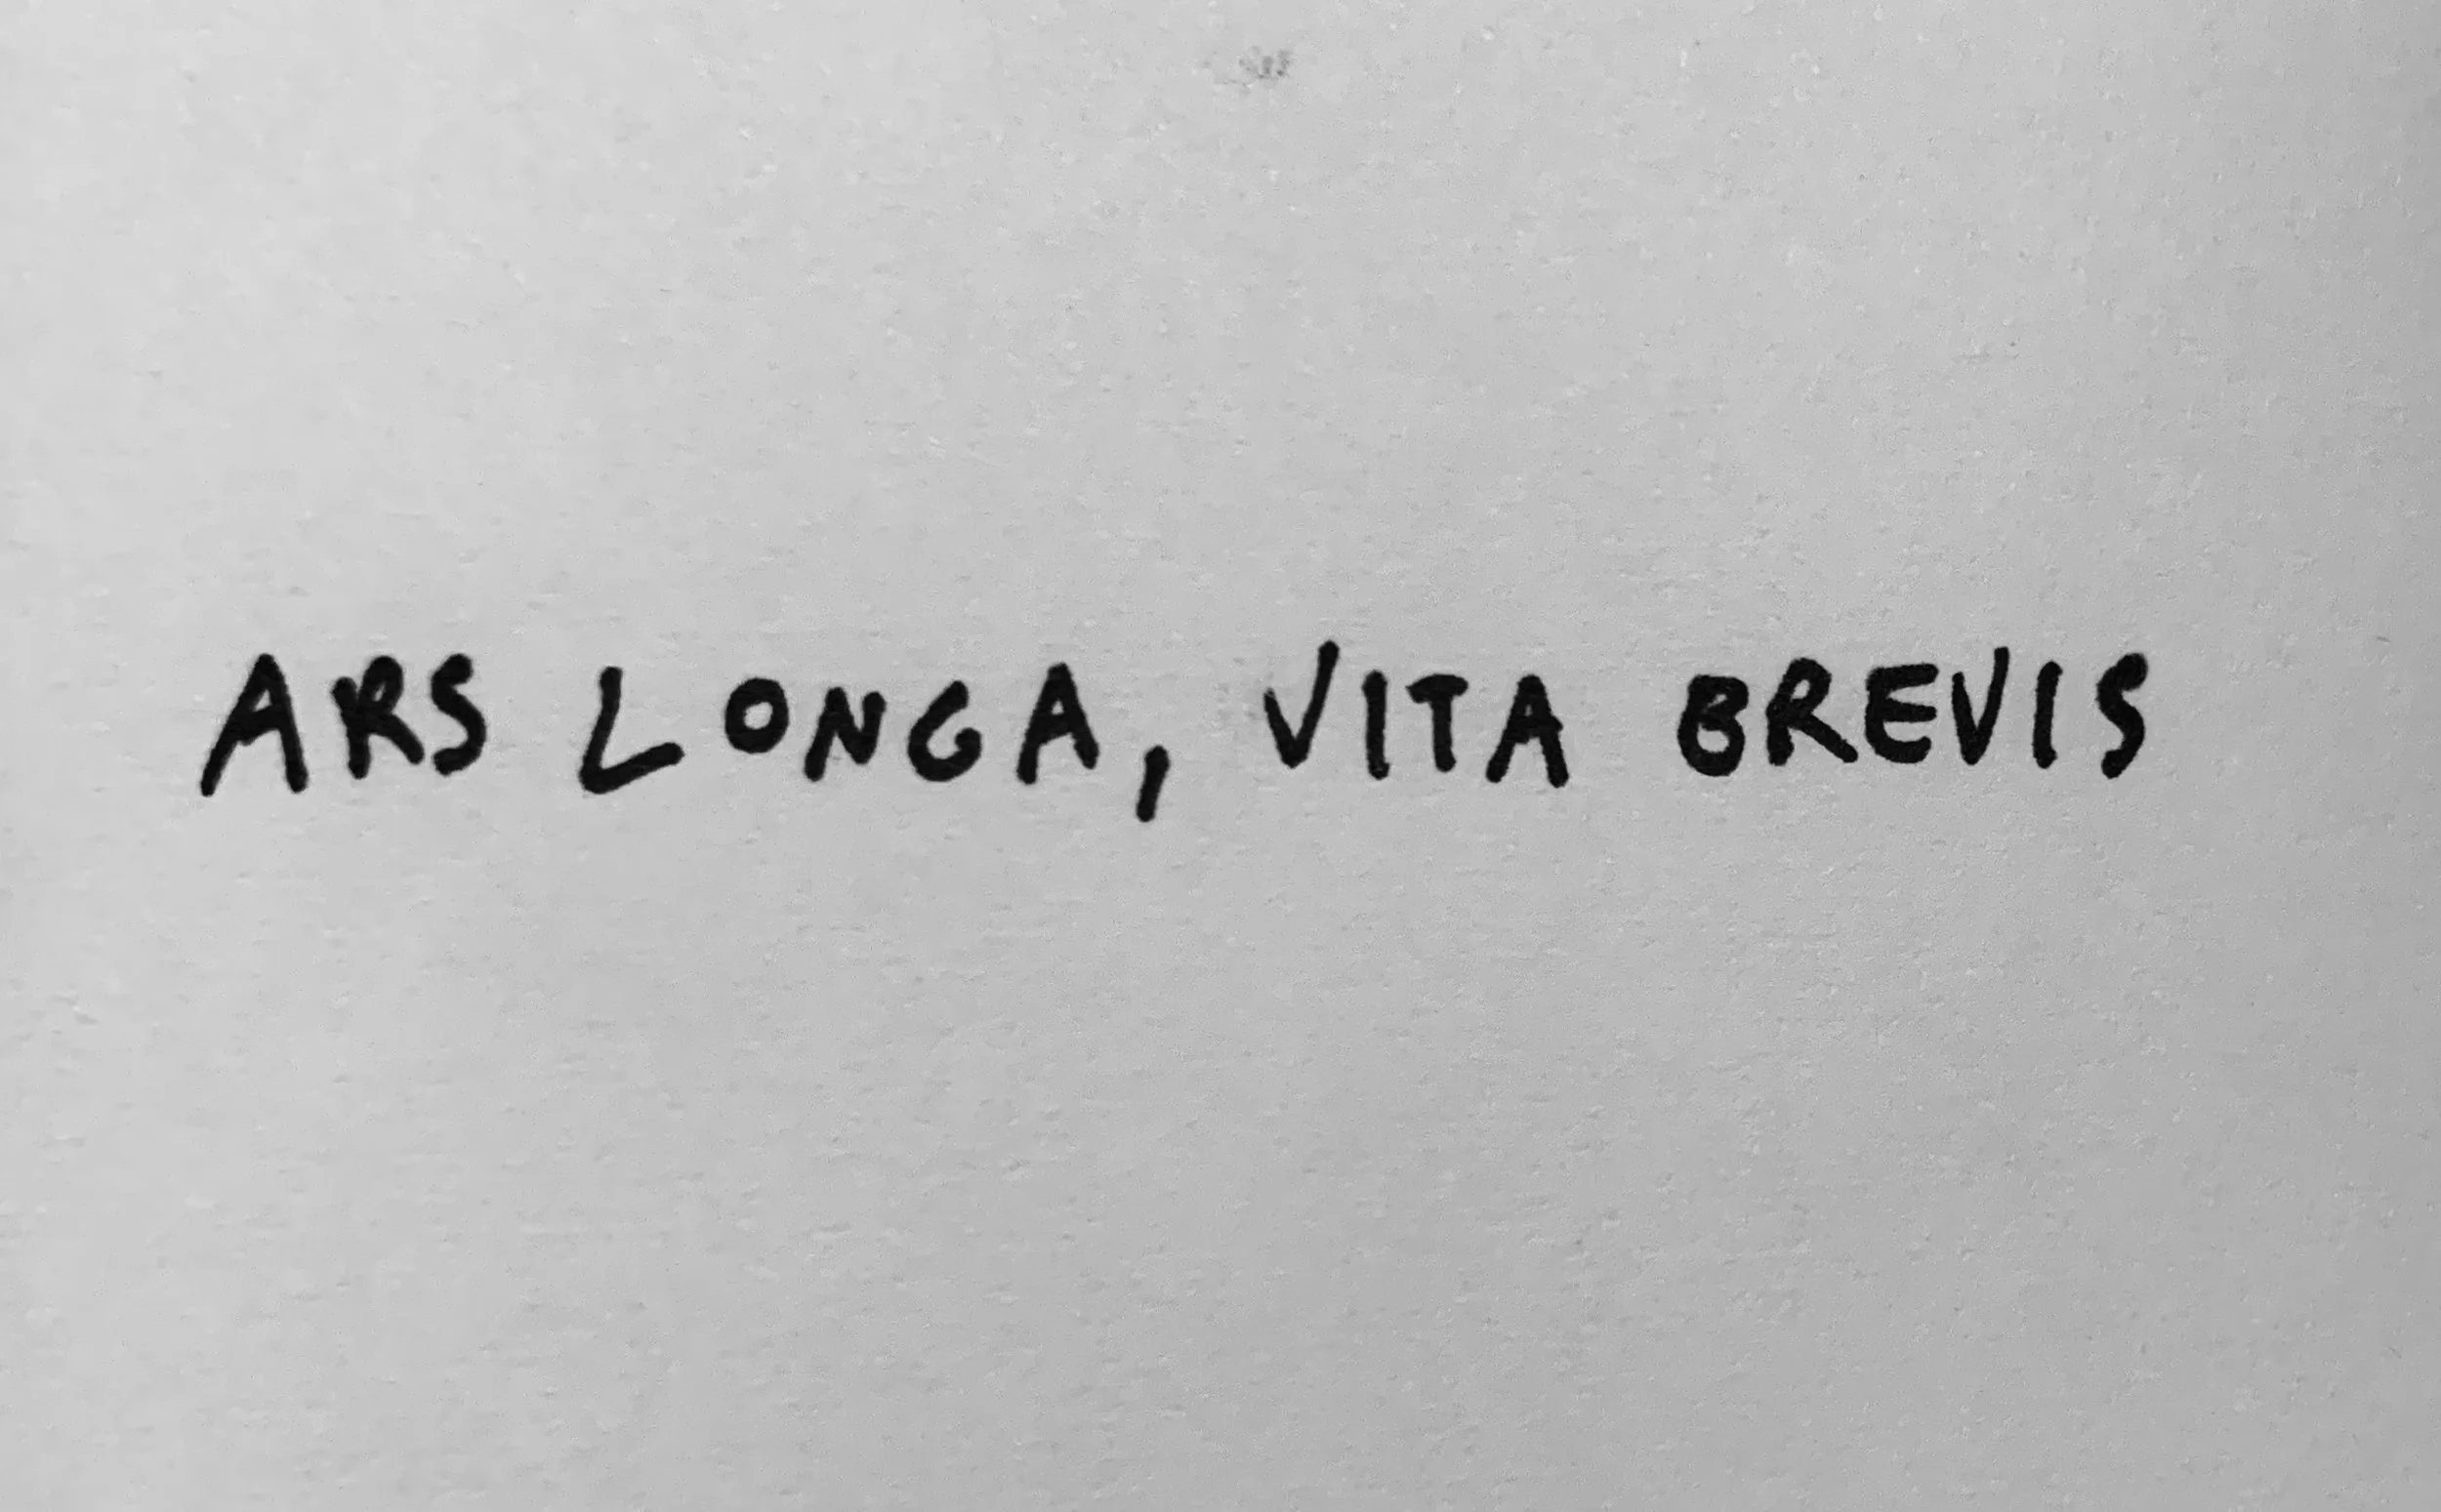 ARS LONGA, VITA BREVIS